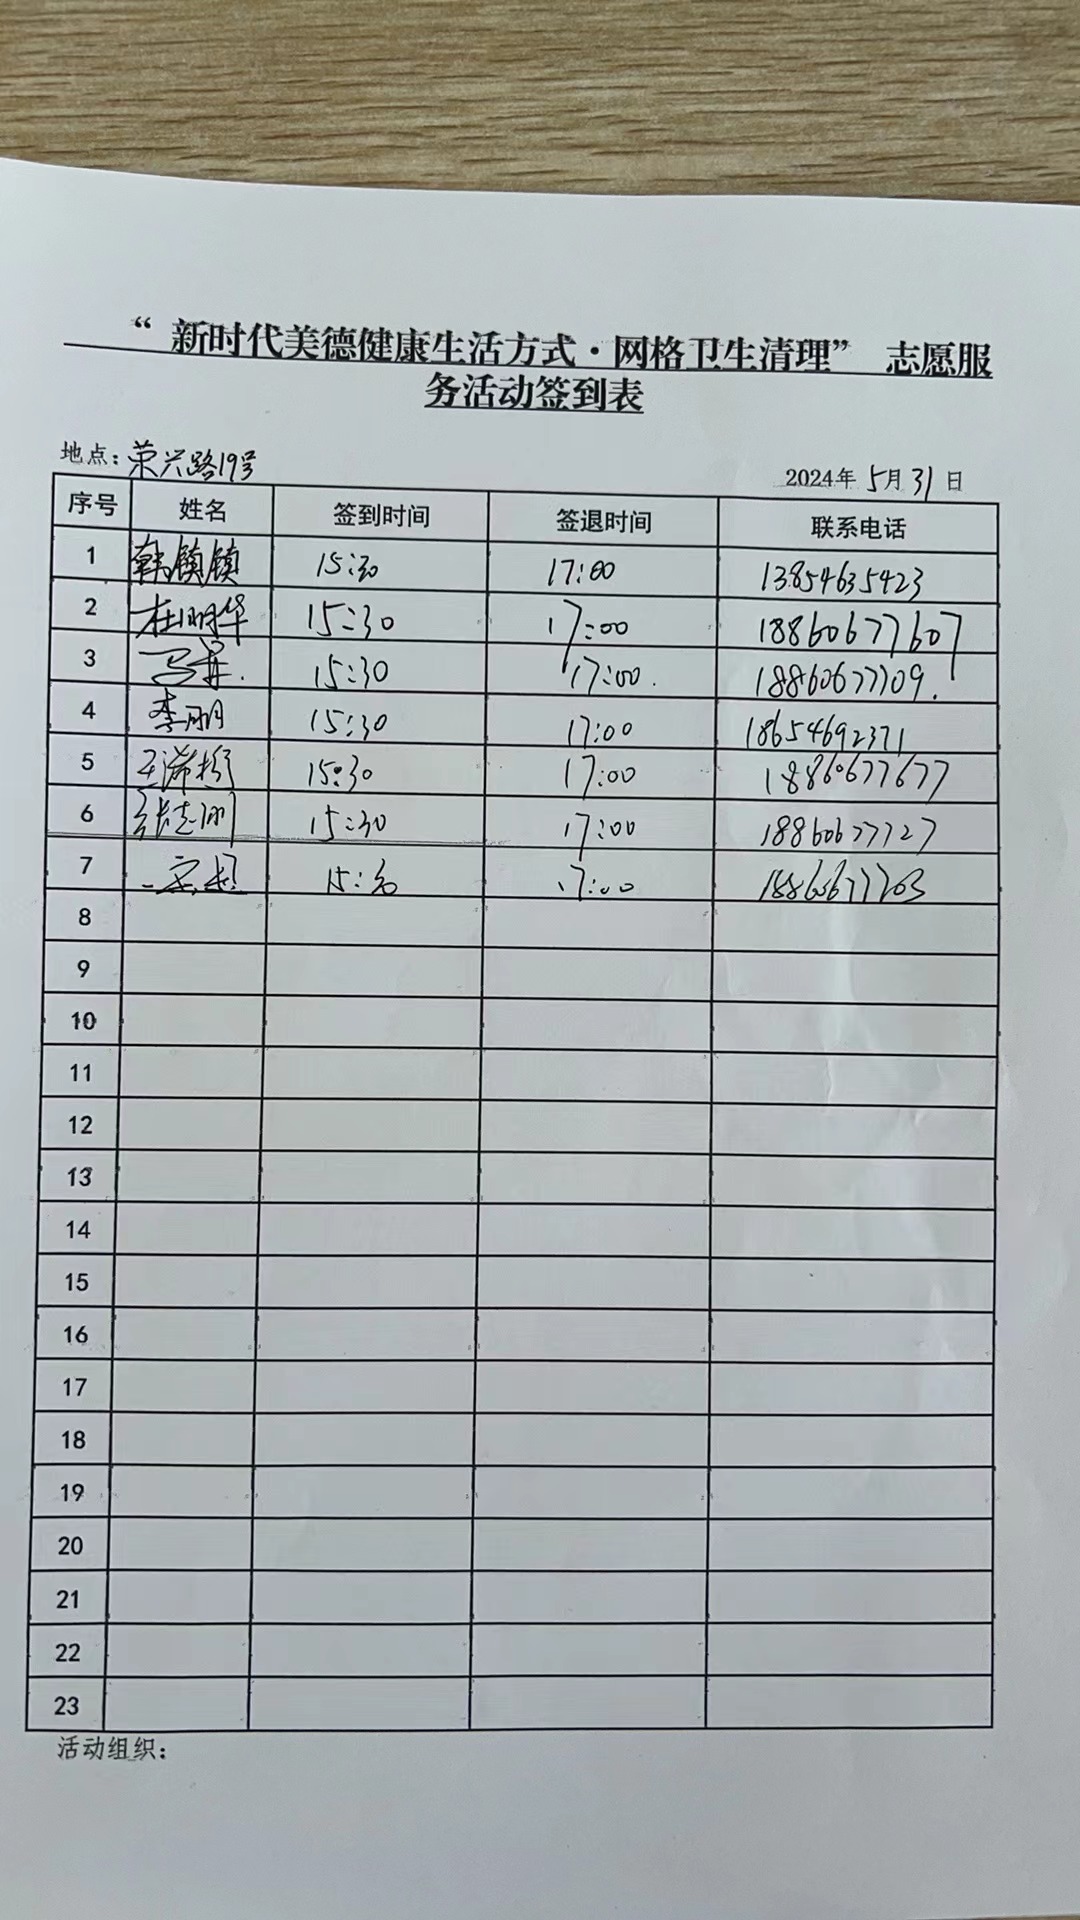 “ 新时代美德健康生活方式·网格卫生清理” 志愿服
务活动签到表
地点：荣兴路19号 2024年 5月31日
序号 姓名 签到时间 签退时间 联系电话
1 韩镇镇 15:30 17:00 13854635423
2 杜明华 15:30 17:00 18860677607
3 15:30 17:00. 18860677709.
4 李明 15:30 17:00 18654692371
5 15:30 17:00 18860677677
6 15:30 17:00 18860677727
7 15:30 17:00 18860677703
8
9
10
11
12
13
14
15
16
17
18
19
20
21
22
23
活动组织：